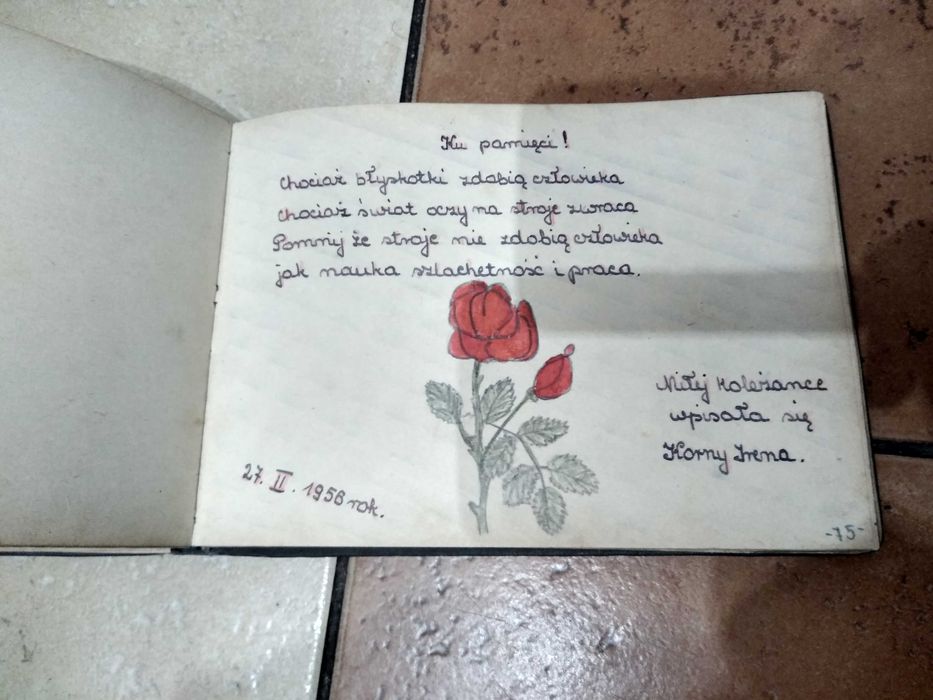 Ku pamięci!
Chociaż błyskotki zdobią człowieka
chociaż świat oczy na stroje zwraca
Pomnij że stroje nie zdobią człowieka
jak nauka szlachetność i praca.
Miłej koleżance
wpisała się
Korny Irena.
27. II. 1956 rok.
-75-